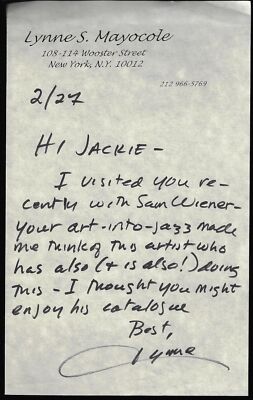 Lynne S. Mayocole
108-114 Wooster Street
New York, N.Y. 10012
212 966-5769
2/27
HI JACKIE -
I visited you re-
cently with Sam Wiener-
your art-into-jazz made
me think of this artist who
has also (+ is also!) doing
this - I thought you might
enjoy his catalogue
Best,
Lynne